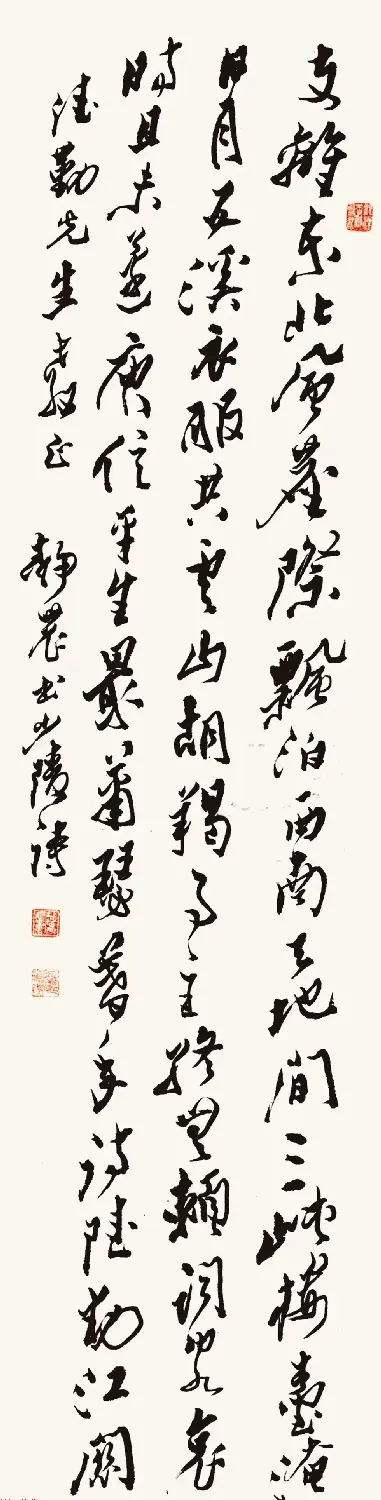 支離東北風塵際飄泊西南天地間三峽樓臺淹
日月五溪衣服共雲山胡羯事主終無賴詞客哀
時且未還庾信平生最蕭瑟暮年詩賦動江關
勤先生教正 靜農書少陵詩